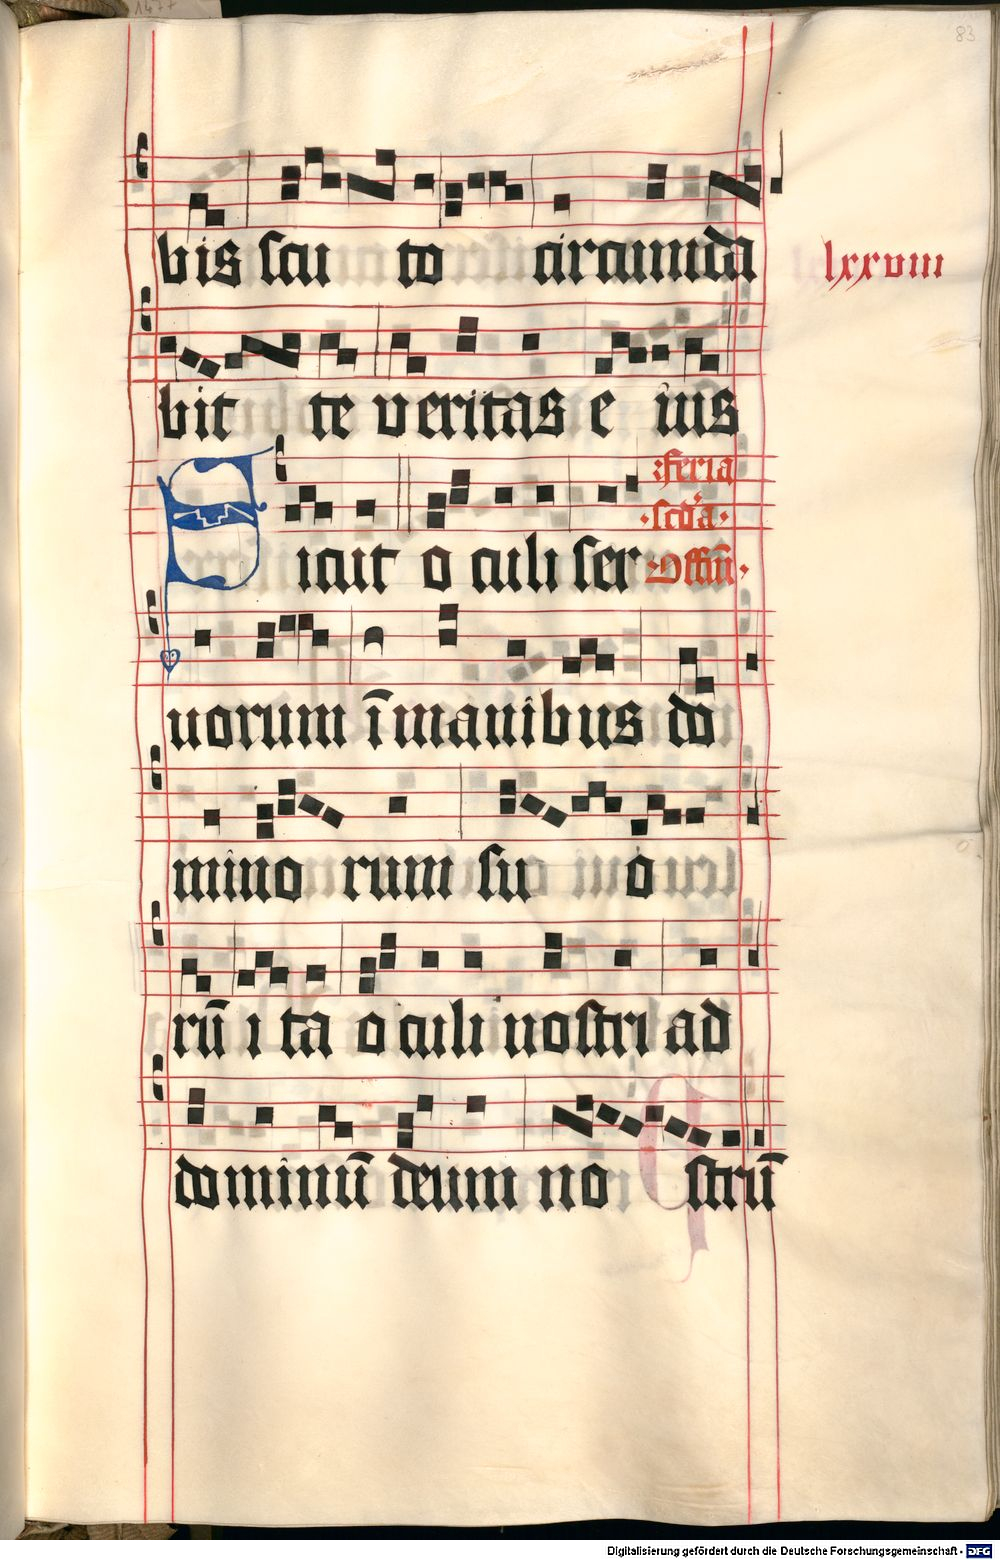 83
bis scu to circumda
lxxviii
bit te veritas e ius
feria
scd'a
Sicut o culi ser
Offiū
uorum ī manibus do
mino rum su o
rū i ta o culi nostri ad
dominū deum no strū
Digitalisierung gefördert durch die Deutsche Forschungsgemeinschaft - DFG